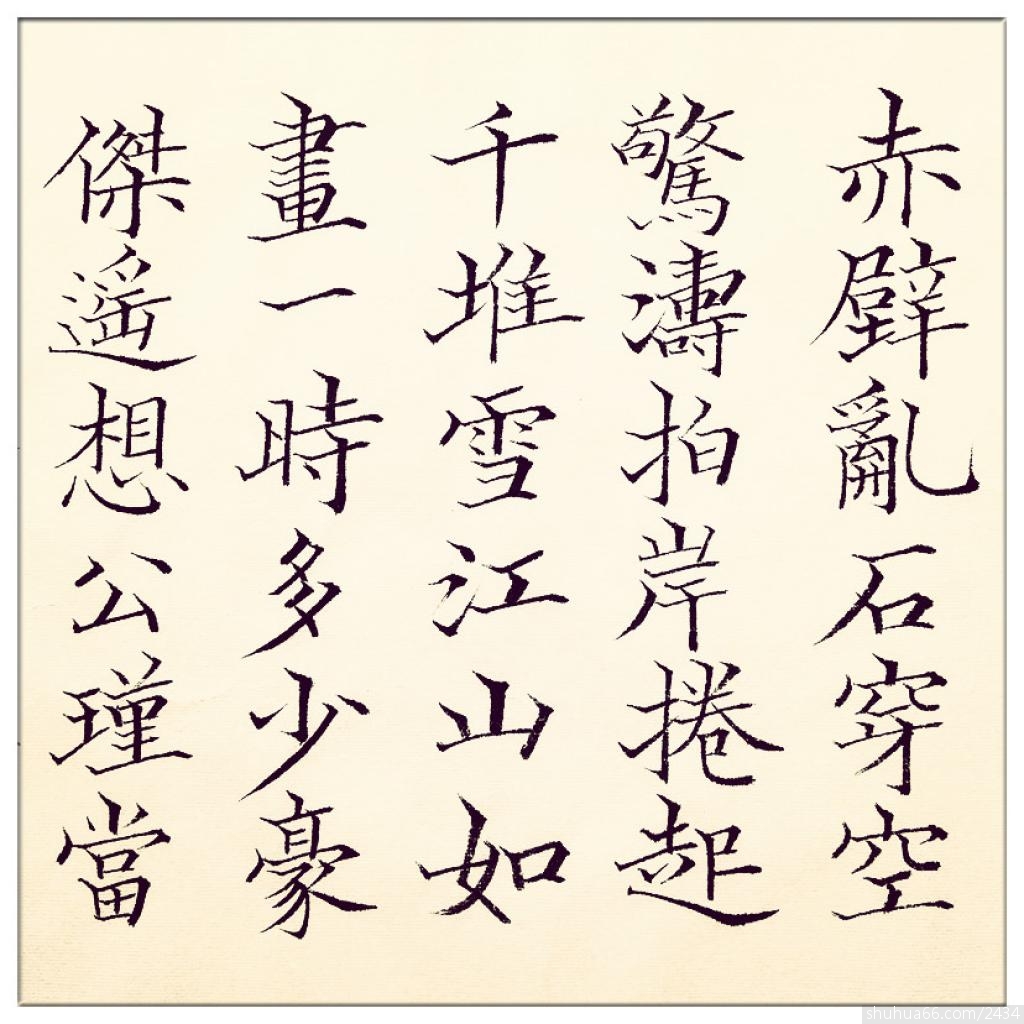 赤壁亂石穿空
驚濤拍岸捲起
千堆雪江山如
畫一時多少豪
傑遥想公瑾當
shuhua66.com/2434